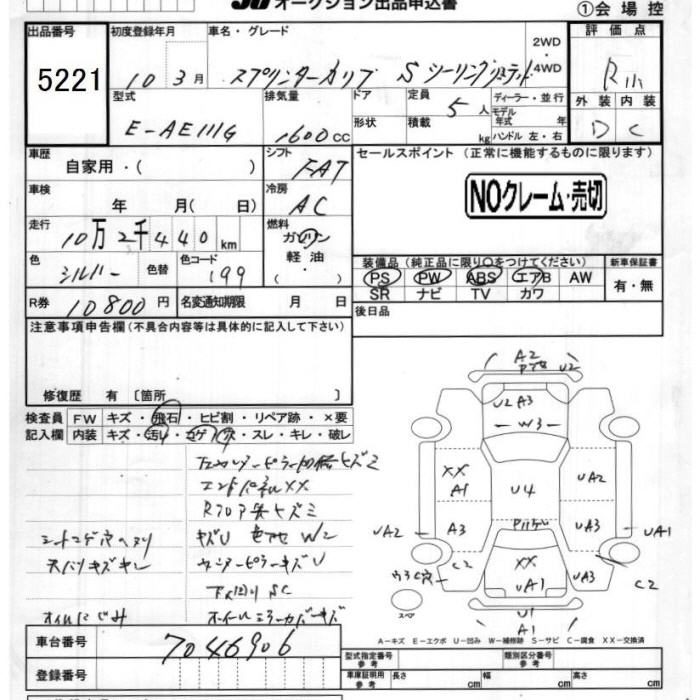 オークション出品申込書
①会場控
出品番号
5221
初度登録年月
10 3月
車名・グレード
スプリンターカリブ S ツーリングリミテッド
2WD
4WD
評価点
R
外装 内装
D C
型式
E-AE111G
排気量
1600cc
ドア
形状
定員
5人
積載
kg
ディーラー・並行
モデル年式 年
ハンドル 左・右
車歴
自家用・( )
シフト
FAT
セールスポイント (正常に機能するものに限ります)
NOクレーム・売切
車検
年 月( 日)
冷房
AC
走行
10万2千440km
燃料
ガソリン
軽油
( )
色
シルバー
色替
色コード
199
装備品 (純正品に限り○をつけてください)
PS PW ABS エアB AW
SR ナビ TV カワ
新車保証書
有・無
R券
10800円
名変通知期限 月 日
後日品
注意事項申告欄(不具合内容等は具体的に記入して下さい)
修復歴 有 〔箇所 〕
検査員
記入欄
FW キズ・飛石・ヒビ割・リペア跡・×要
内装 キズ・汚れ・コゲ・穴・スレ・キレ・破レ
エンドパネルXX
キズU 色アセ W2
センターピラーキズU
下廻りSC
オイルにじみ
A2
U2
U2 A3
W3
XX
A1
U4
UA2
UA2
A3
UA3
UA1
C2
XX
UA1
UA3
C2
U1
A1
スペア
A-キズ E-エクボ U-凹み W-補修跡 S-サビ C-腐食 XX-交換済
車台番号
7046906
登録番号
型式指定番号
参考
類別区分番号
参考
車庫証明用
参考
長さ cm 幅 cm 高さ cm